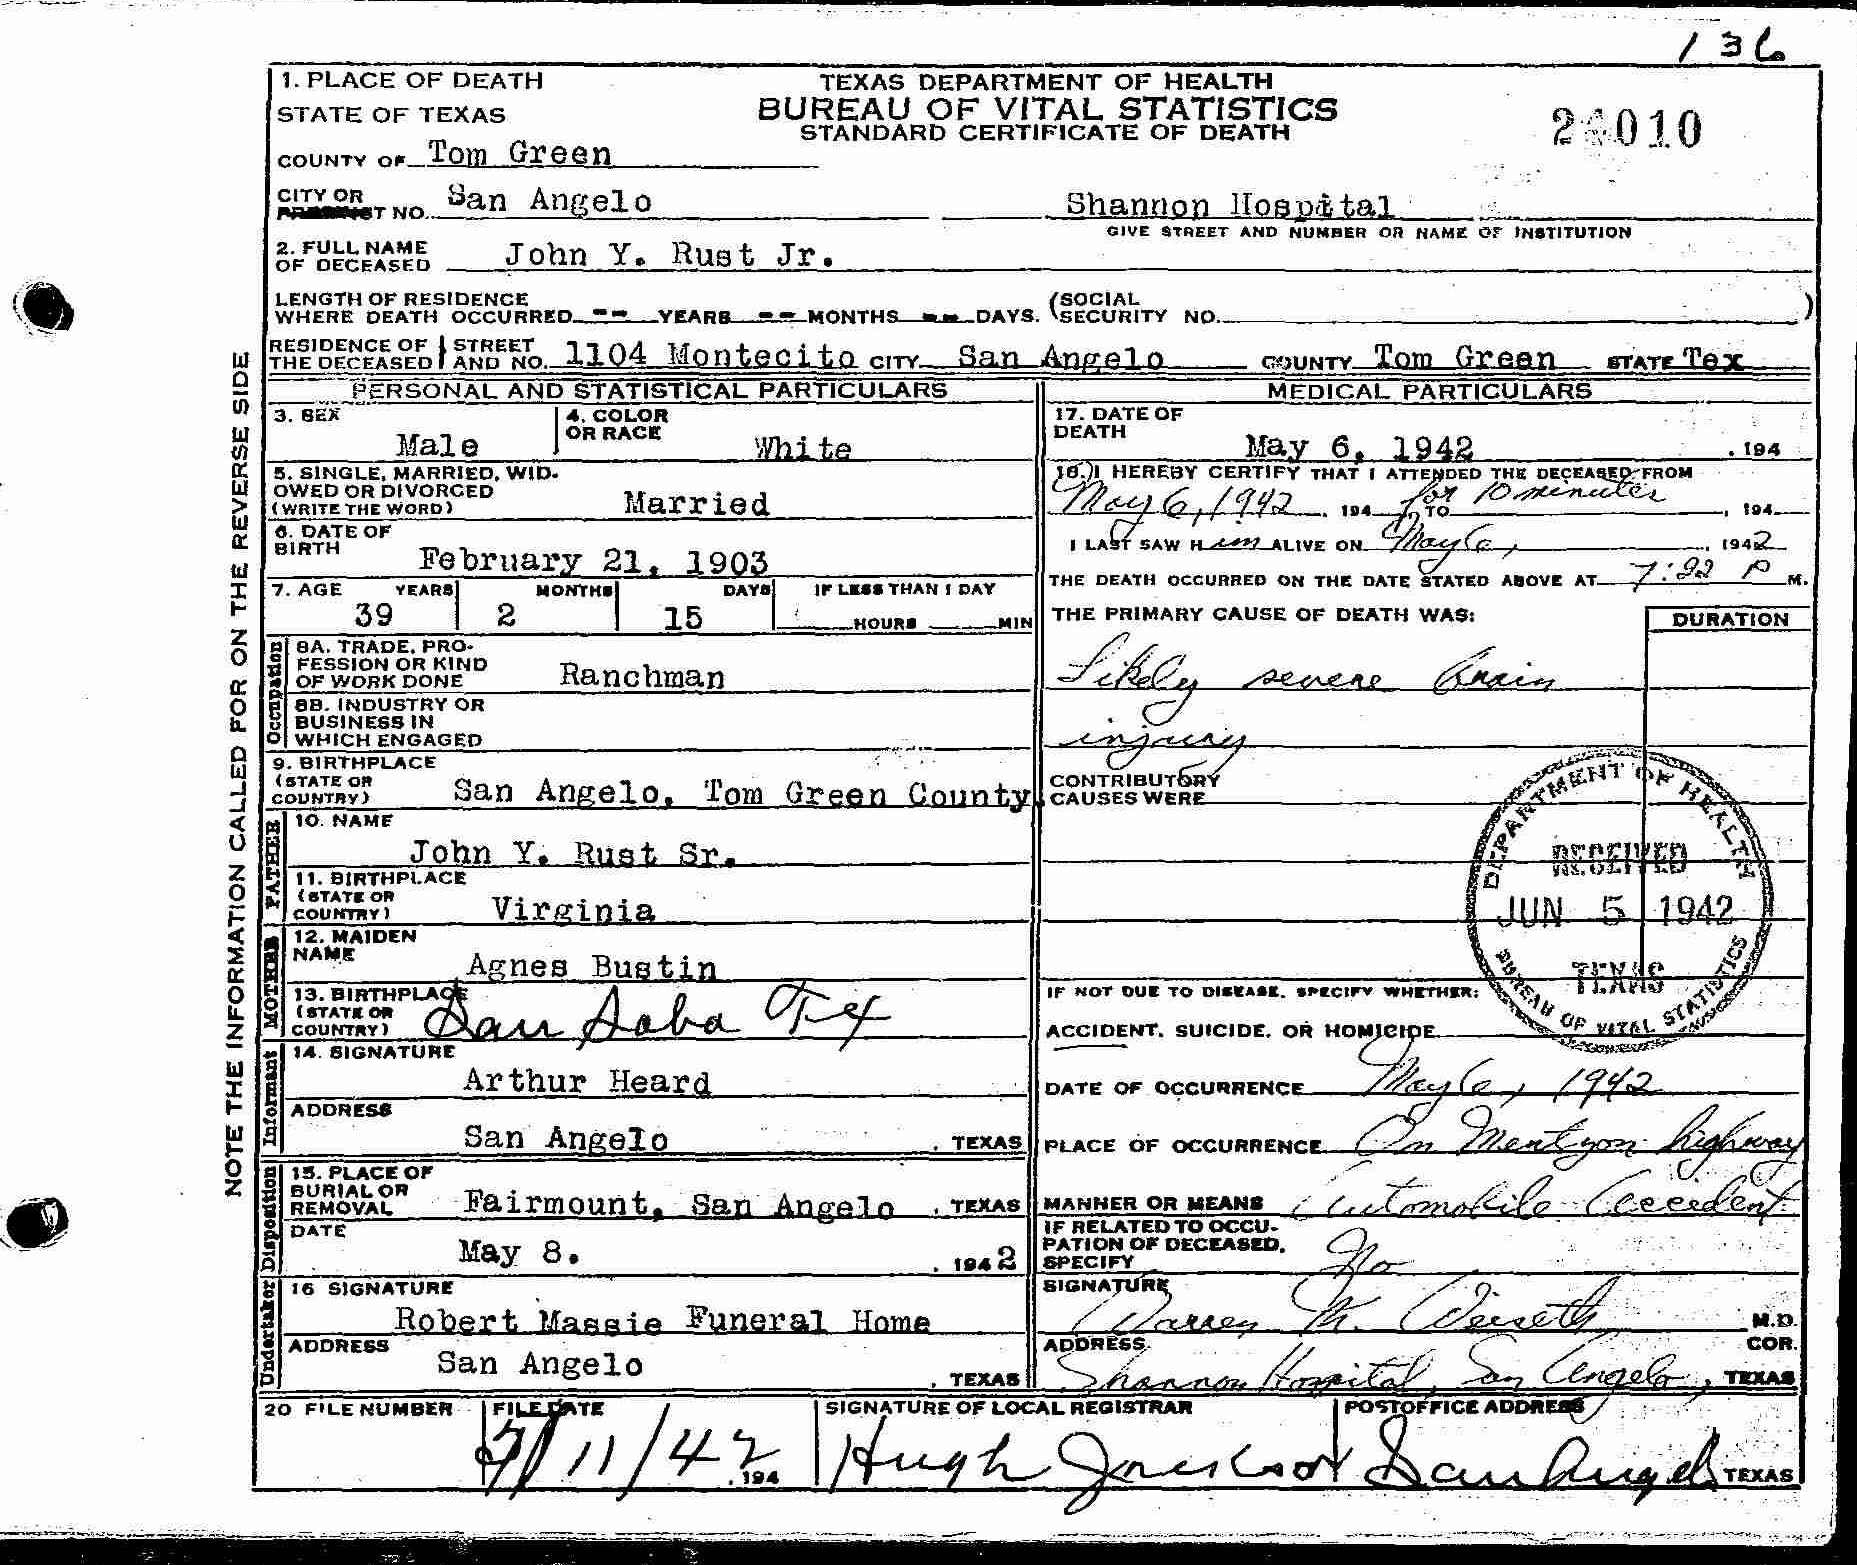 136
1. PLACE OF DEATH
STATE OF TEXAS
TEXAS DEPARTMENT OF HEALTH
BUREAU OF VITAL STATISTICS
STANDARD CERTIFICATE OF DEATH
2 010
COUNTY OF Tom Green
CITY OR
T NO. San Angelo
Shannon Hospital
GIVE STREET AND NUMBER OR NAME OF INSTITUTION
2. FULL NAME
OF DECEASED John Y. Rust Jr.
LENGTH OF RESIDENCE
WHERE DEATH OCCURRED -- YEARS -- MONTHS -- DAYS. (SOCIAL
SECURITY NO. )
RESIDENCE OF THE DECEASED } STREET AND NO. 1104 Montecito CITY San Angelo COUNTY Tom Green STATE Tex
NOTE THE INFORMATION CALLED FOR ON THE REVERSE SIDE
PERSONAL AND STATISTICAL PARTICULARS
3. SEX Male
4. COLOR OR RACE White
5. SINGLE, MARRIED, WID-
OWED OR DIVORCED
(WRITE THE WORD) Married
6. DATE OF
BIRTH February 21, 1903
7. AGE YEARS MONTHS DAYS IF LESS THAN 1 DAY
39 2 15 HOURS MIN
Occupation
8A. TRADE, PRO-
FESSION OR KIND
OF WORK DONE Ranchman
8B. INDUSTRY OR
BUSINESS IN
WHICH ENGAGED
9. BIRTHPLACE
(STATE OR
COUNTRY) San Angelo, Tom Green County
FATHER
10. NAME
John Y. Rust Sr.
11. BIRTHPLACE
(STATE OR
COUNTRY) Virginia
MOTHER
12. MAIDEN
NAME Agnes Bustin
13. BIRTHPLACE
(STATE OR
COUNTRY) San Saba Tex
Informant
14. SIGNATURE
Arthur Heard
ADDRESS
San Angelo , TEXAS
Disposition
15. PLACE OF
BURIAL OR
REMOVAL Fairmount, San Angelo , TEXAS
DATE
May 8. , 1942
Undertaker
16 SIGNATURE
Robert Massie Funeral Home
ADDRESS
San Angelo , TEXAS
MEDICAL PARTICULARS
17. DATE OF
DEATH May 6, 1942 , 194
18. I HEREBY CERTIFY THAT I ATTENDED THE DECEASED FROM
May 6, 1942 , 194 TO for 10 minutes , 194
I LAST SAW Him ALIVE ON May 6, , 1942
THE DEATH OCCURRED ON THE DATE STATED ABOVE AT 7:22 P M.
THE PRIMARY CAUSE OF DEATH WAS: DURATION
Likely severe brain
injury
CONTRIBUTORY
CAUSES WERE
DEPARTMENT OF HEALTH
RECEIVED
JUN 5 1942
TEXAS
BUREAU OF VITAL STATISTICS
IF NOT DUE TO DISEASE, SPECIFY WHETHER:
ACCIDENT, SUICIDE, OR HOMICIDE
DATE OF OCCURRENCE May 6, 1942
PLACE OF OCCURRENCE On highway
MANNER OR MEANS Automobile Accident
IF RELATED TO OCCU-
PATION OF DECEASED,
SPECIFY No
SIGNATURE
Warren M. M.D.
ADDRESS COR.
Shannon Hospital, San Angelo, TEXAS
20 FILE NUMBER FILE DATE SIGNATURE OF LOCAL REGISTRAR POSTOFFICE ADDRESS
/11/42 , 194 Hugh Jackson San Angelo TEXAS